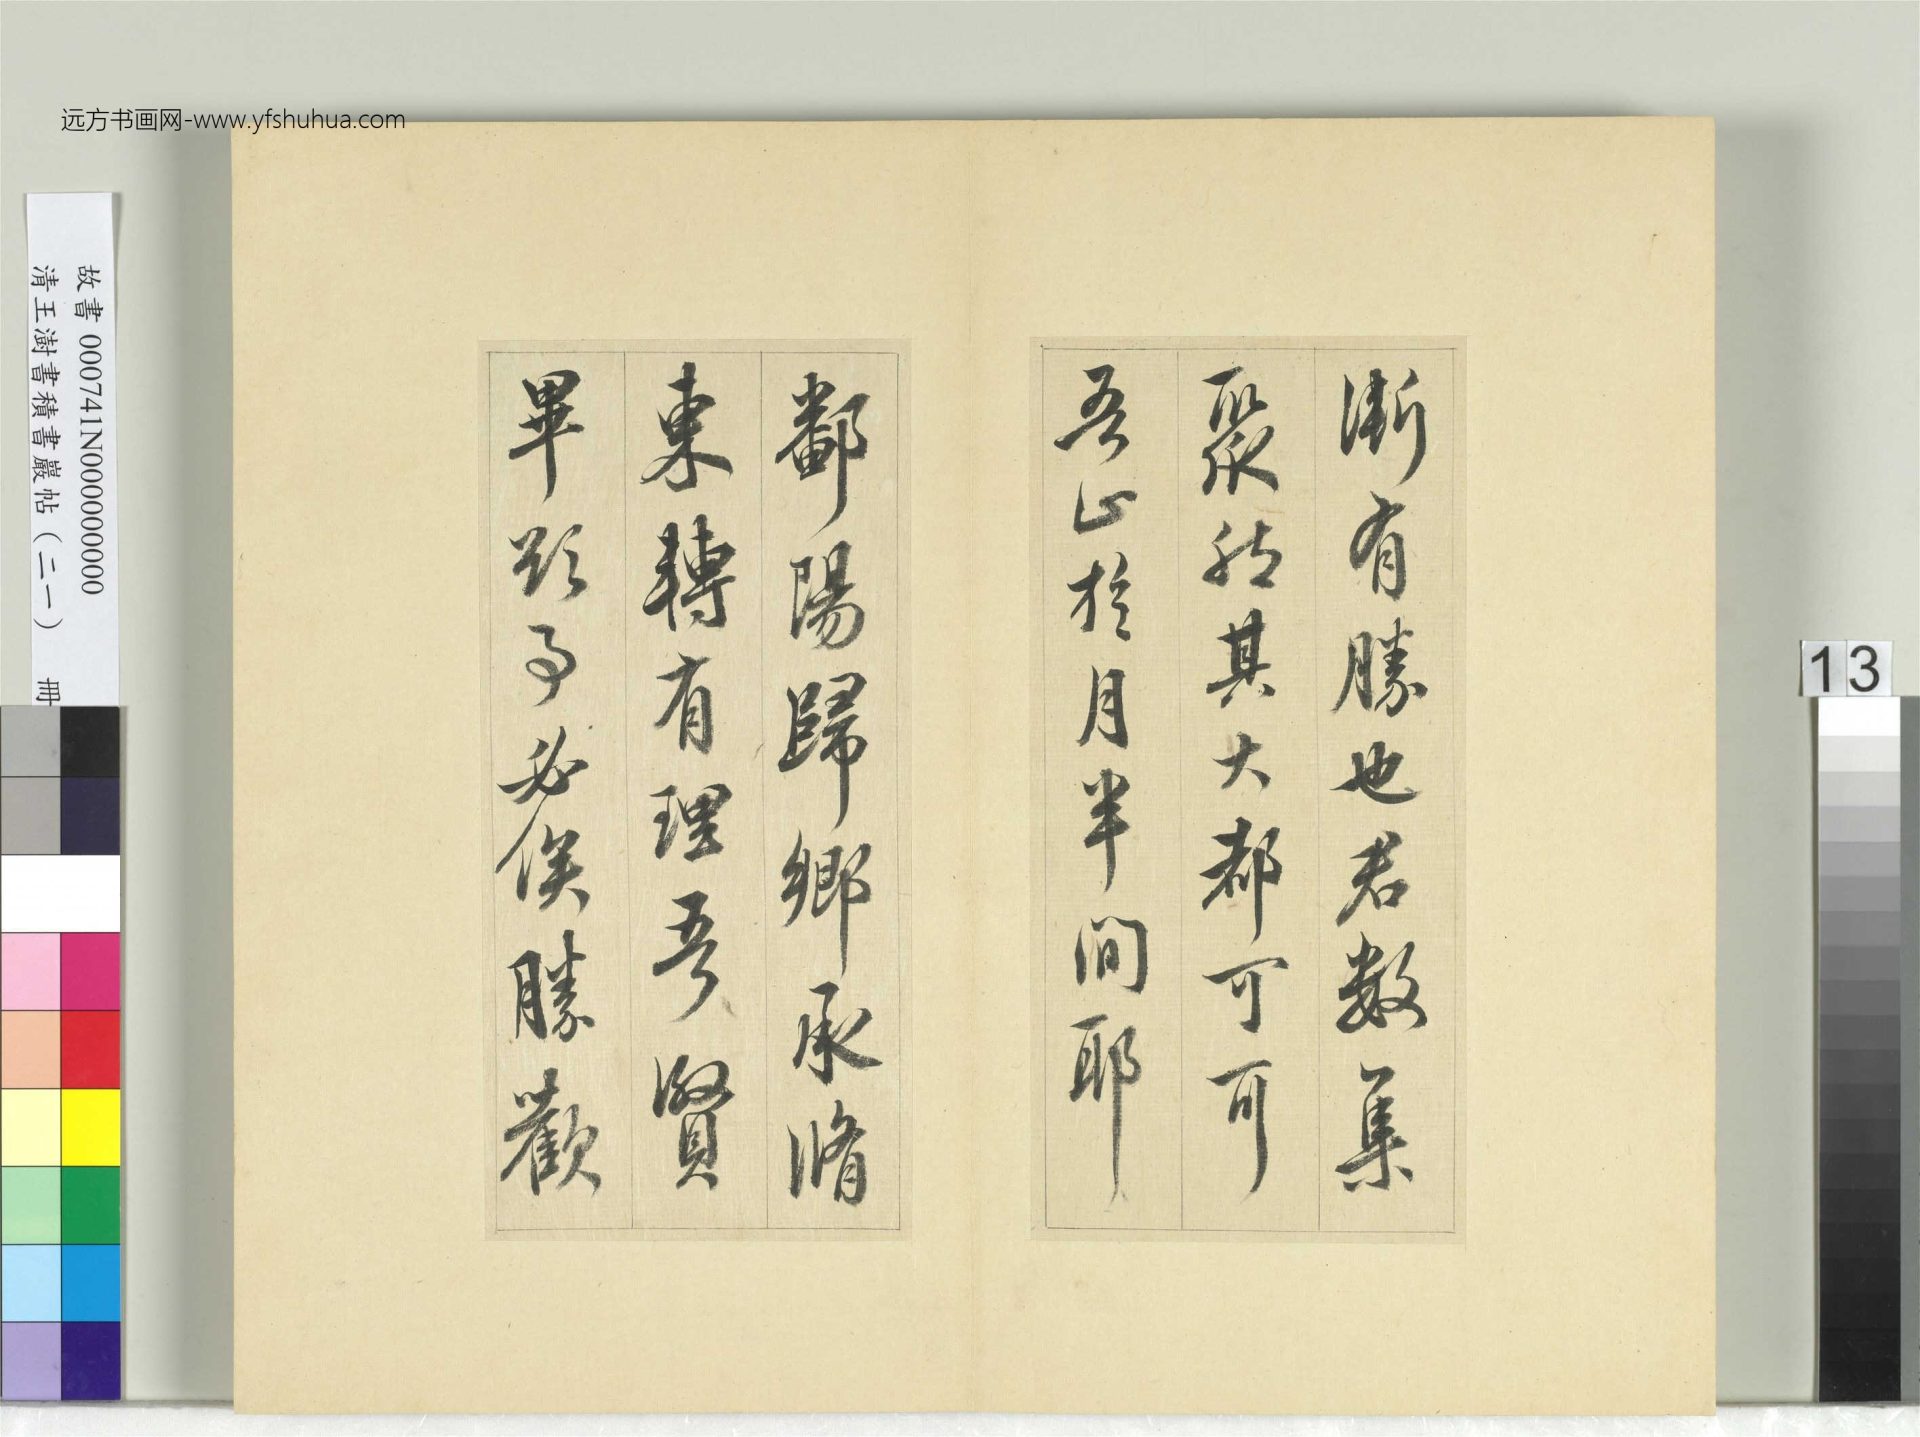 远方书画网-www.yfshuhua.com
故書 000741N000000000
清王澍書積書巖帖（二一） 冊
13
漸有勝也君數集
聚然其大都可可
吾止於月半間耶
鄱陽歸鄉承脩
東轉有理吾賢
畢題事必俟勝歡